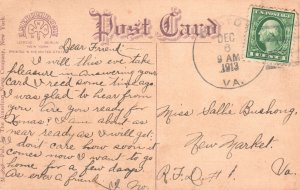 Post Card
DEC
6
9 AM
1913
VA.
Dear Friend:-
I will this eve take
pleasure in answering your
card I recd some time ago
was glad to hear from
you. Are you ready for
Xmas? I am about as
near ready as I will get.
I dont care how soon it
comes now I want to go
home for a few days.
As ever a friend
Miss Sallie Bushong
New Market.
R.F.D. #1. Va.